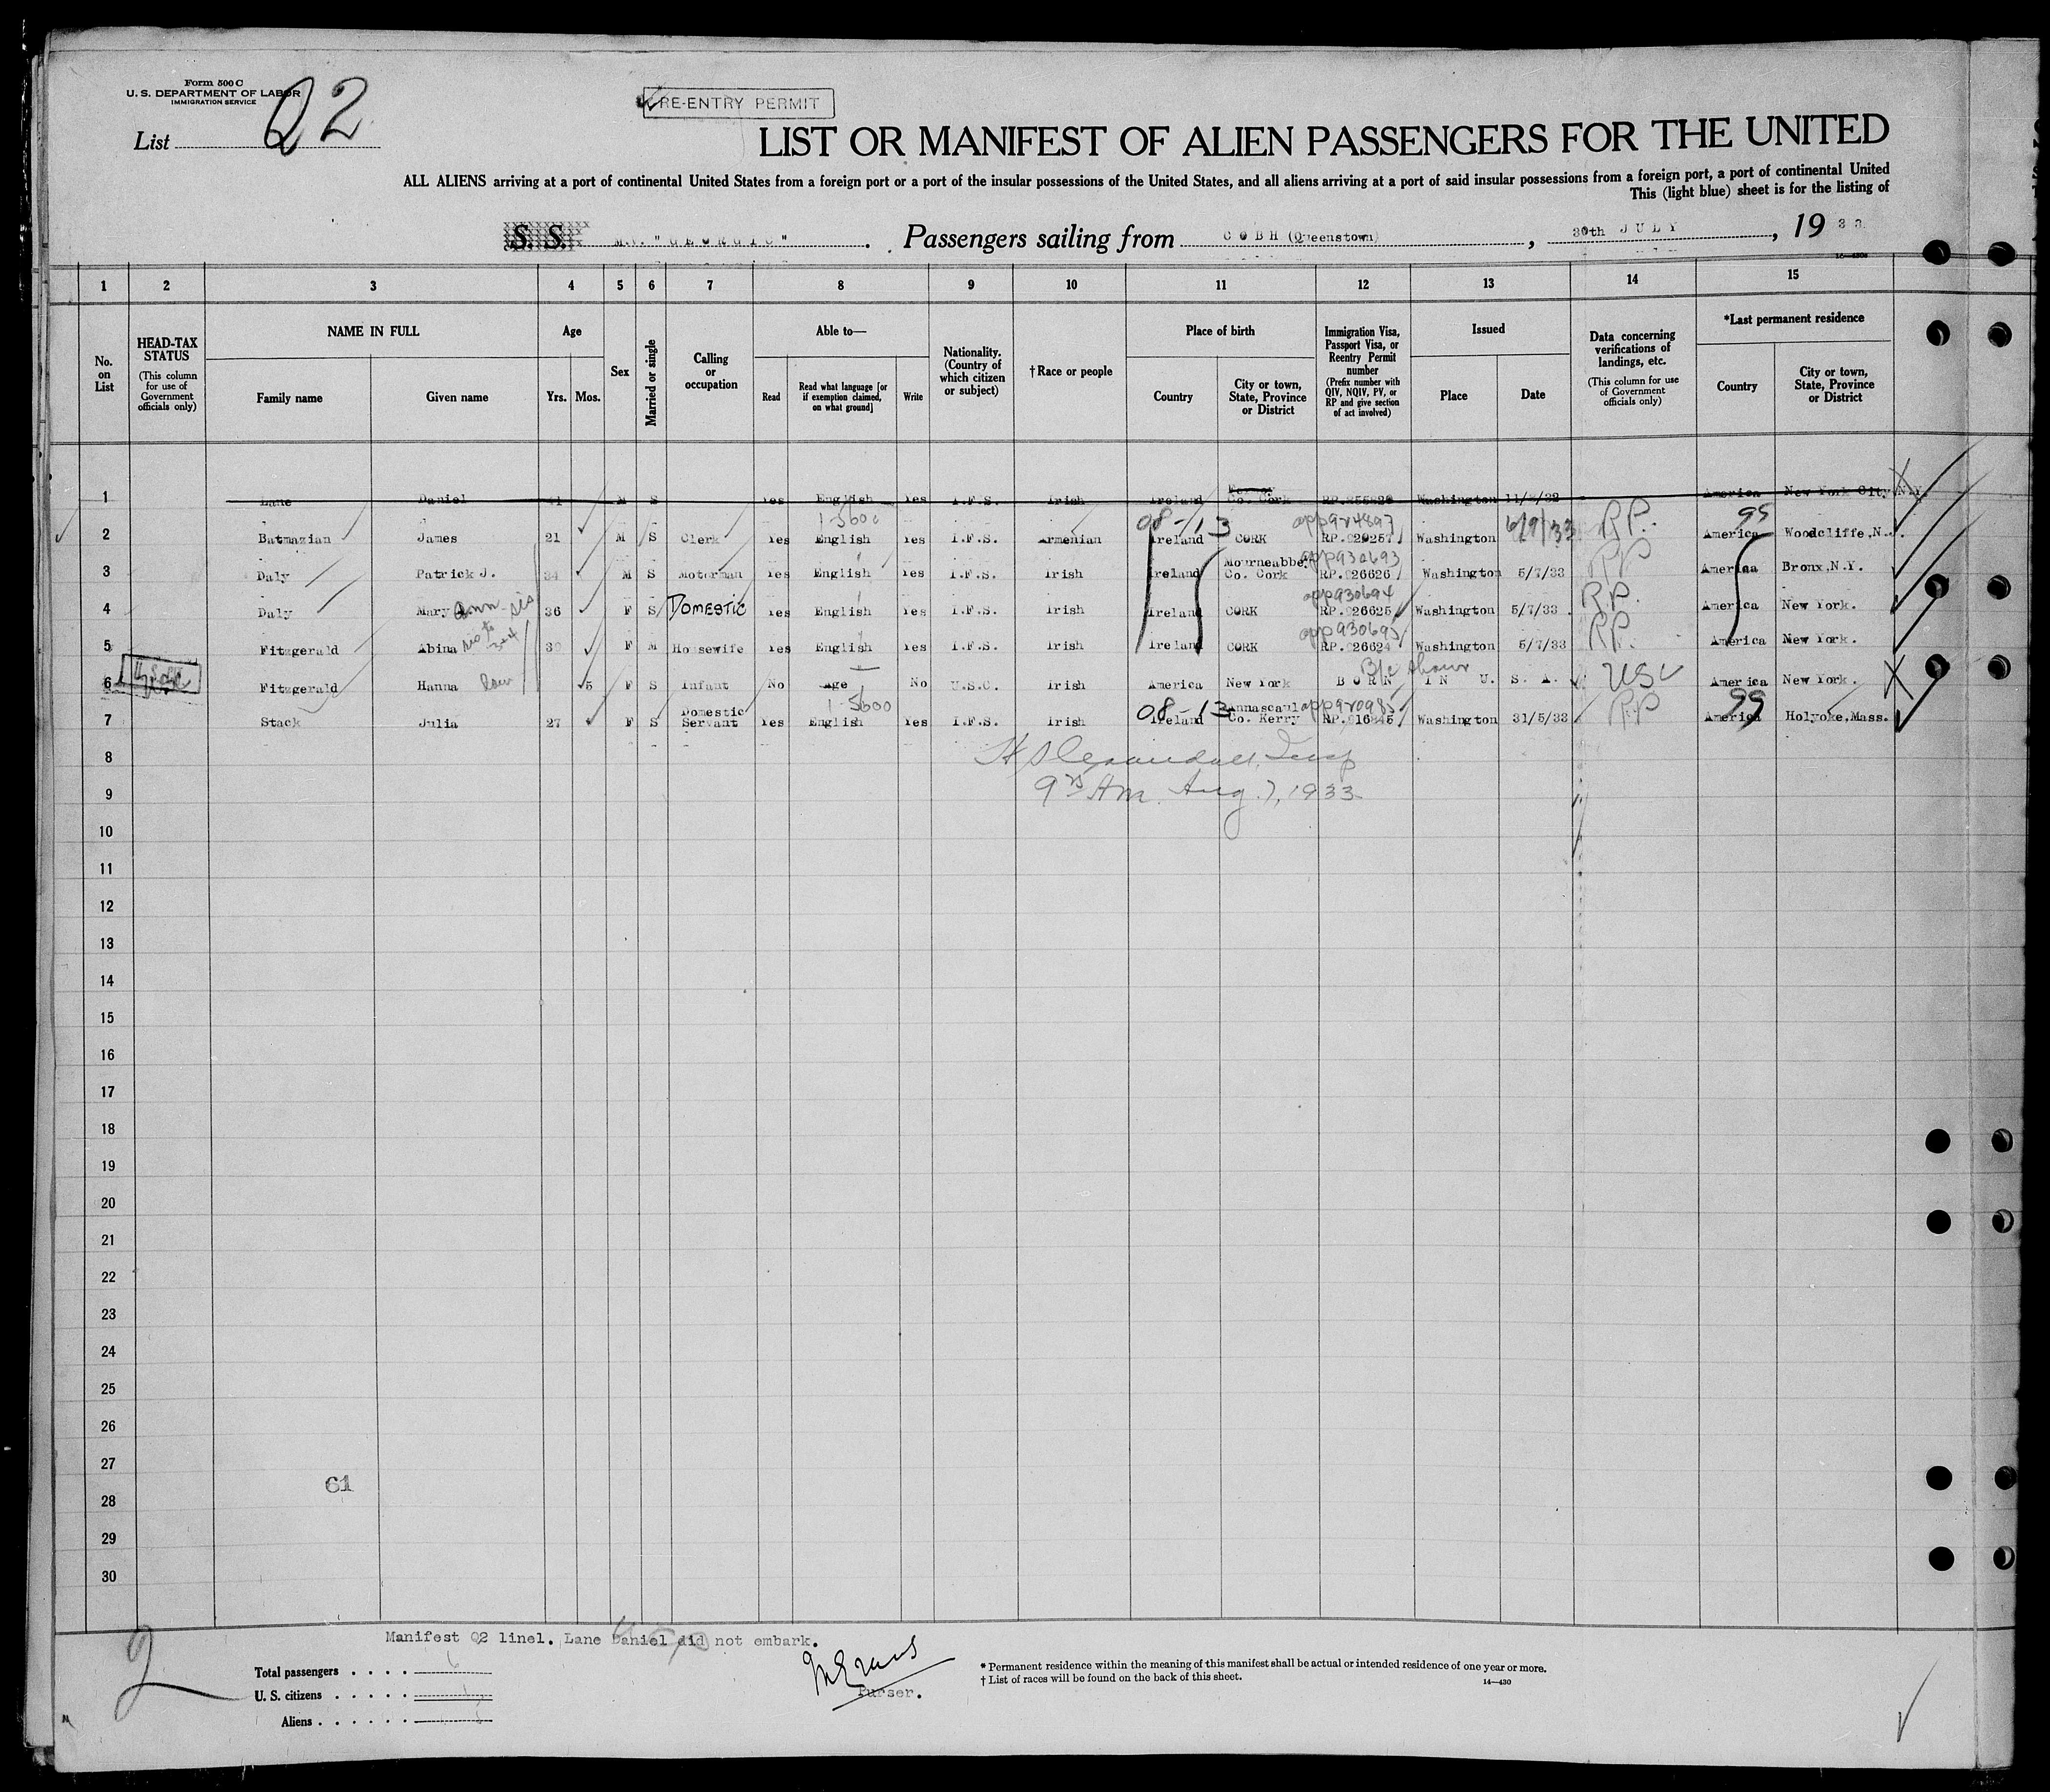 Form 500 C
U. S. DEPARTMENT OF LABOR
IMMIGRATION SERVICE
List Q2
RE-ENTRY PERMIT
LIST OR MANIFEST OF ALIEN PASSENGERS FOR THE UNITED
ALL ALIENS arriving at a port of continental United States from a foreign port or a port of the insular possessions of the United States, and all aliens arriving at a port of said insular possessions from a foreign port, a port of continental United
This (light blue) sheet is for the listing of
S. S. M.V. "GEORGIC" . Passengers sailing from COBH (Queenstown) , 30th JULY , 19 33.
1 2 3 4 5 6 7 8 9 10 11 12 13 14 15
No. on List
HEAD-TAX STATUS (This column for use of Government officials only)
NAME IN FULL Family name Given name
Age Yrs. Mos.
Sex
Married or single
Calling or occupation
Able to— Read Read what language [or if exemption claimed, on what ground] Write
Nationality. (Country of which citizen or subject)
† Race or people
Place of birth Country City or town, State, Province or District
Immigration Visa, Passport Visa, or Reentry Permit number (Prefix number with QIV, NQIV, PV, or RP and give section of act involved)
Issued Place Date
Data concerning verifications of landings, etc. (This column for use of Government officials only)
*Last permanent residence Country City or town, State, Province or District
1 Lane Daniel 41 M S Yes English Yes I.F.S. Irish Ireland Co. Cork Washington America New York City N.Y.
1-5600 08-13 app924897 99
2 Batmazian James 21 M S Clerk Yes English Yes I.F.S. Armenian Ireland CORK RP.920257 Washington 6/9/33 R.P. America Woodcliffe, N.J.
Mourneabbey app930693
3 Daly Patrick J. 34 M S Motorman Yes English Yes I.F.S. Irish Ireland Co. Cork RP.926626 Washington 5/7/33 RP America Bronx, N.Y.
app930694
4 Daly Mary Ann sis 36 F S DOMESTIC Yes English Yes I.F.S. Irish Ireland CORK RP.926625 Washington 5/7/33 R.P. America New York.
app930695
5 Fitzgerald Abina sis to 3&4 30 F M Housewife Yes English Yes I.F.S. Irish Ireland CORK RP.926624 Washington 5/7/33 R.P. America New York.
B/c shown
6 Fitzgerald Hanna 5 F S Infant No Age No U.S.C. Irish America New York BORN IN U. S. A. USC America New York.
Domestic 1-5600 08-13 Annascaul app920985 99
7 Stack Julia 27 F S Servant Yes English Yes I.F.S. Irish Ireland Co. Kerry RP.916845 Washington 31/5/33 RP America Holyoke, Mass.
8
9 9 Am Aug. 7, 1933
10
11
12
13
14
15
16
17
18
19
20
21
22
23
24
25
26
27
61
28
29
30
Manifest Q2 line1. Lane Daniel did not embark.
2
Total passengers . . . . 6
U. S. citizens . . . . . 1
Aliens . . . . . .
Purser.
* Permanent residence within the meaning of this manifest shall be actual or intended residence of one year or more.
† List of races will be found on the back of this sheet.
14—430